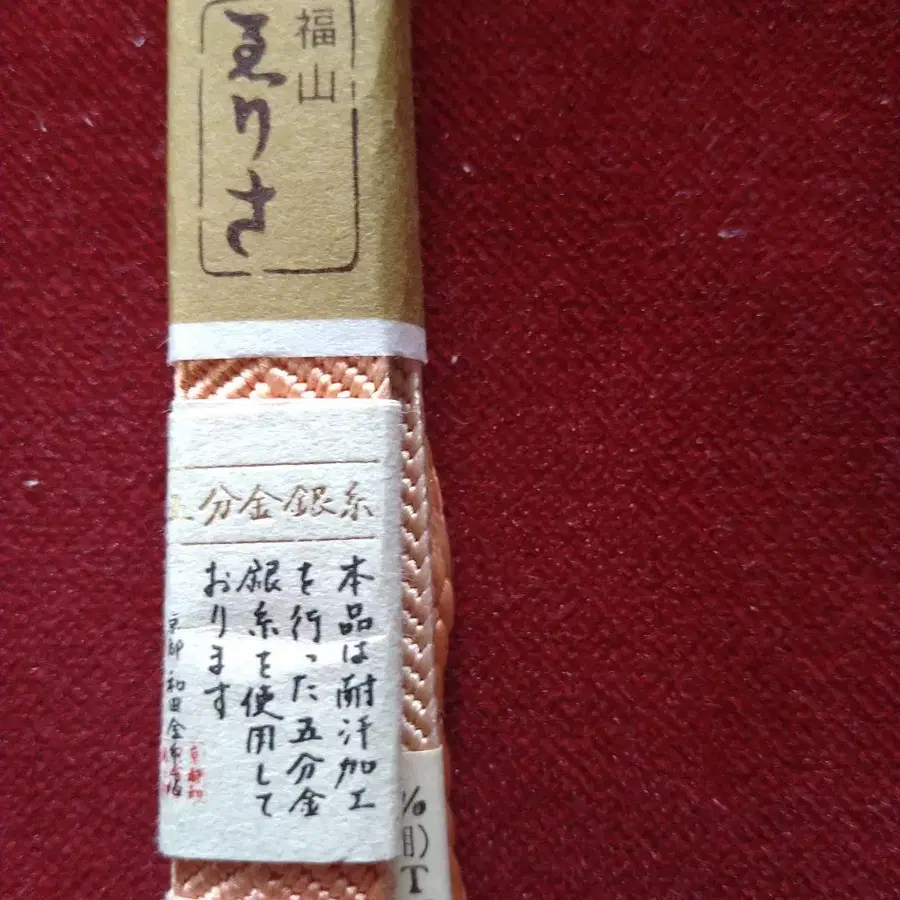 福山
ゑりさ
分金銀糸
本品は耐汗加工
を行った五分金
銀糸を使用して
おります
京都 和田金
%
用)
T